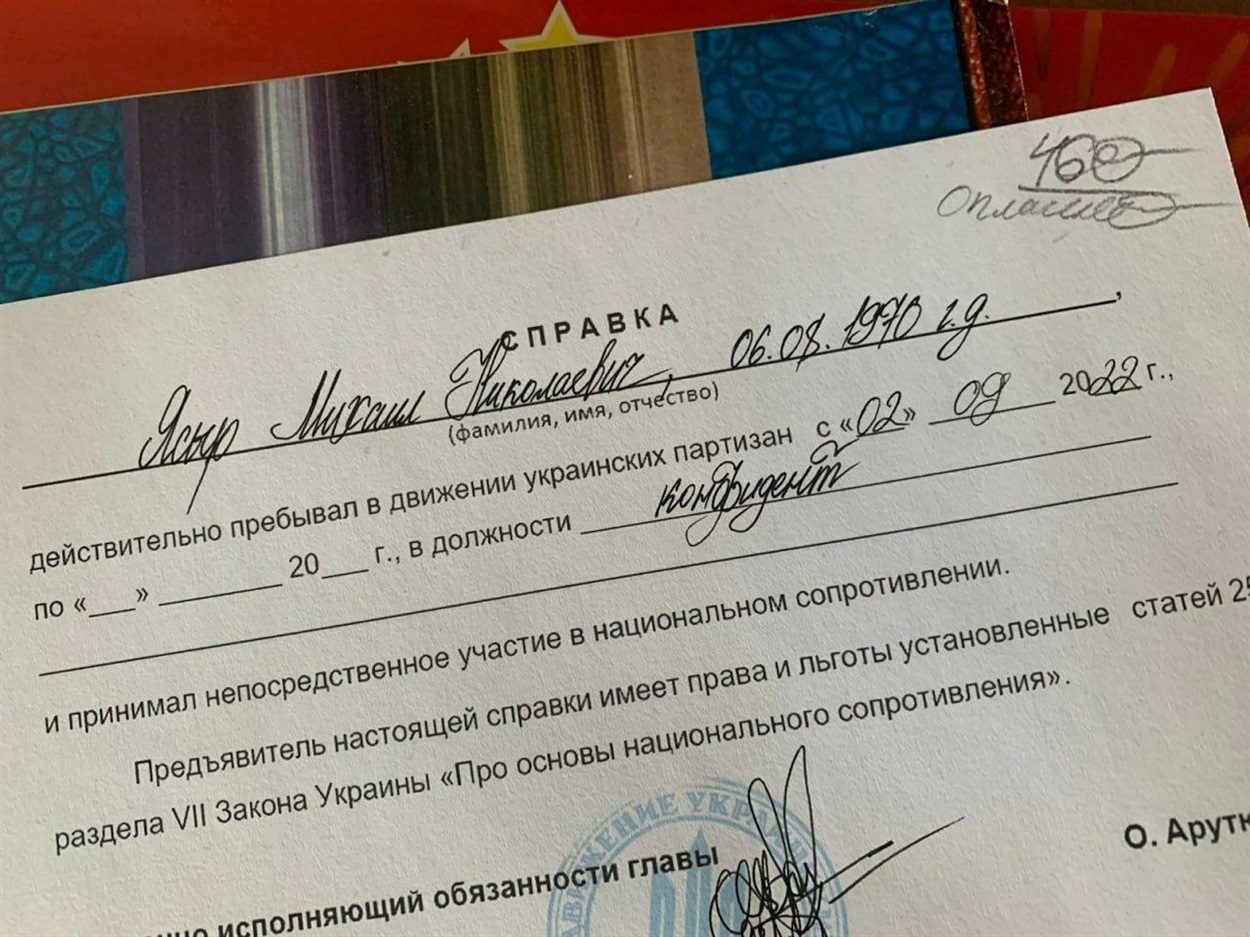 460
Оплачено
СПРАВКА
Яснр Михаил Николаевич, 06.08.1970 г.д.,
(фамилия, имя, отчество)
действительно пребывал в движении украинских партизан с «02» 09 2022 г.,
по «___» ________ 20___ г., в должности конфидент
и принимал непосредственное участие в национальном сопротивлении.
Предъявитель настоящей справки имеет права и льготы установленные статей 25
раздела VII Закона Украины «Про основы национального сопротивления».
ДВИЖЕНИЕ
исполняющий обязанности главы
О. Арутю